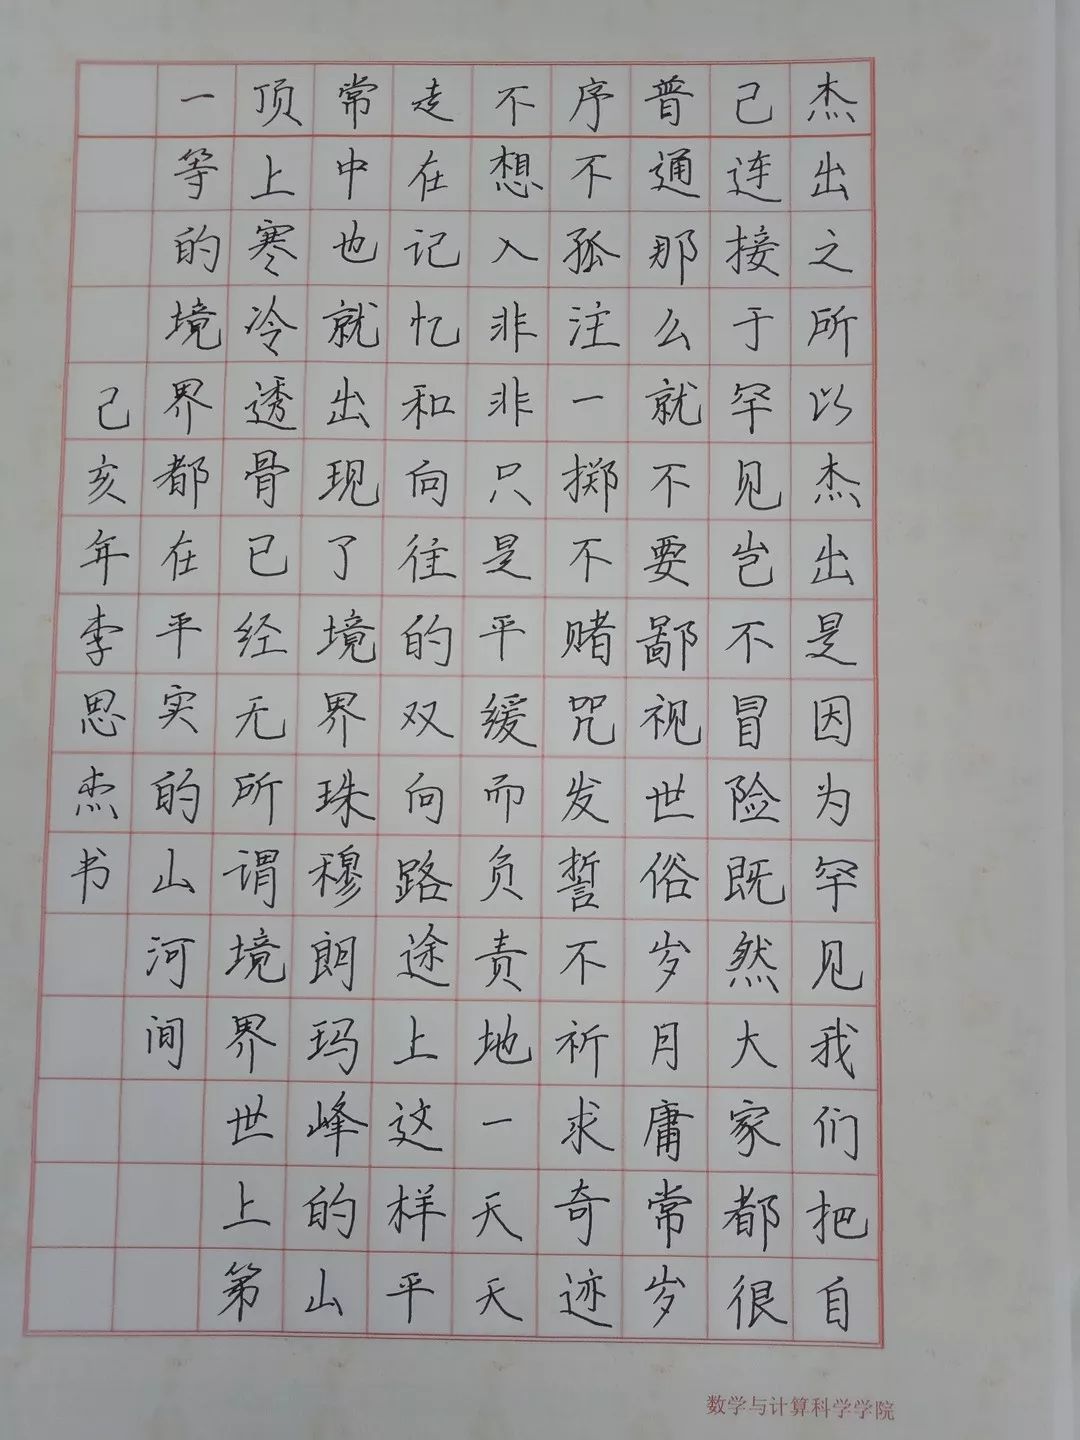 杰出之所以杰出是因为罕见我们把自
己连接于罕见岂不冒险既然大家都很
普通那么就不要鄙视世俗岁月庸常岁
序不孤注一掷不赌咒发誓不祈求奇迹
不想入非非只是平缓而负责地一天天
走在记忆和向往的双向路途上这样平
常中也就出现了境界珠穆朗玛峰的山
顶上寒冷透骨已经无所谓境界世上第
一等的境界都在平实的山河间
己亥年李思杰书
数学与计算科学学院